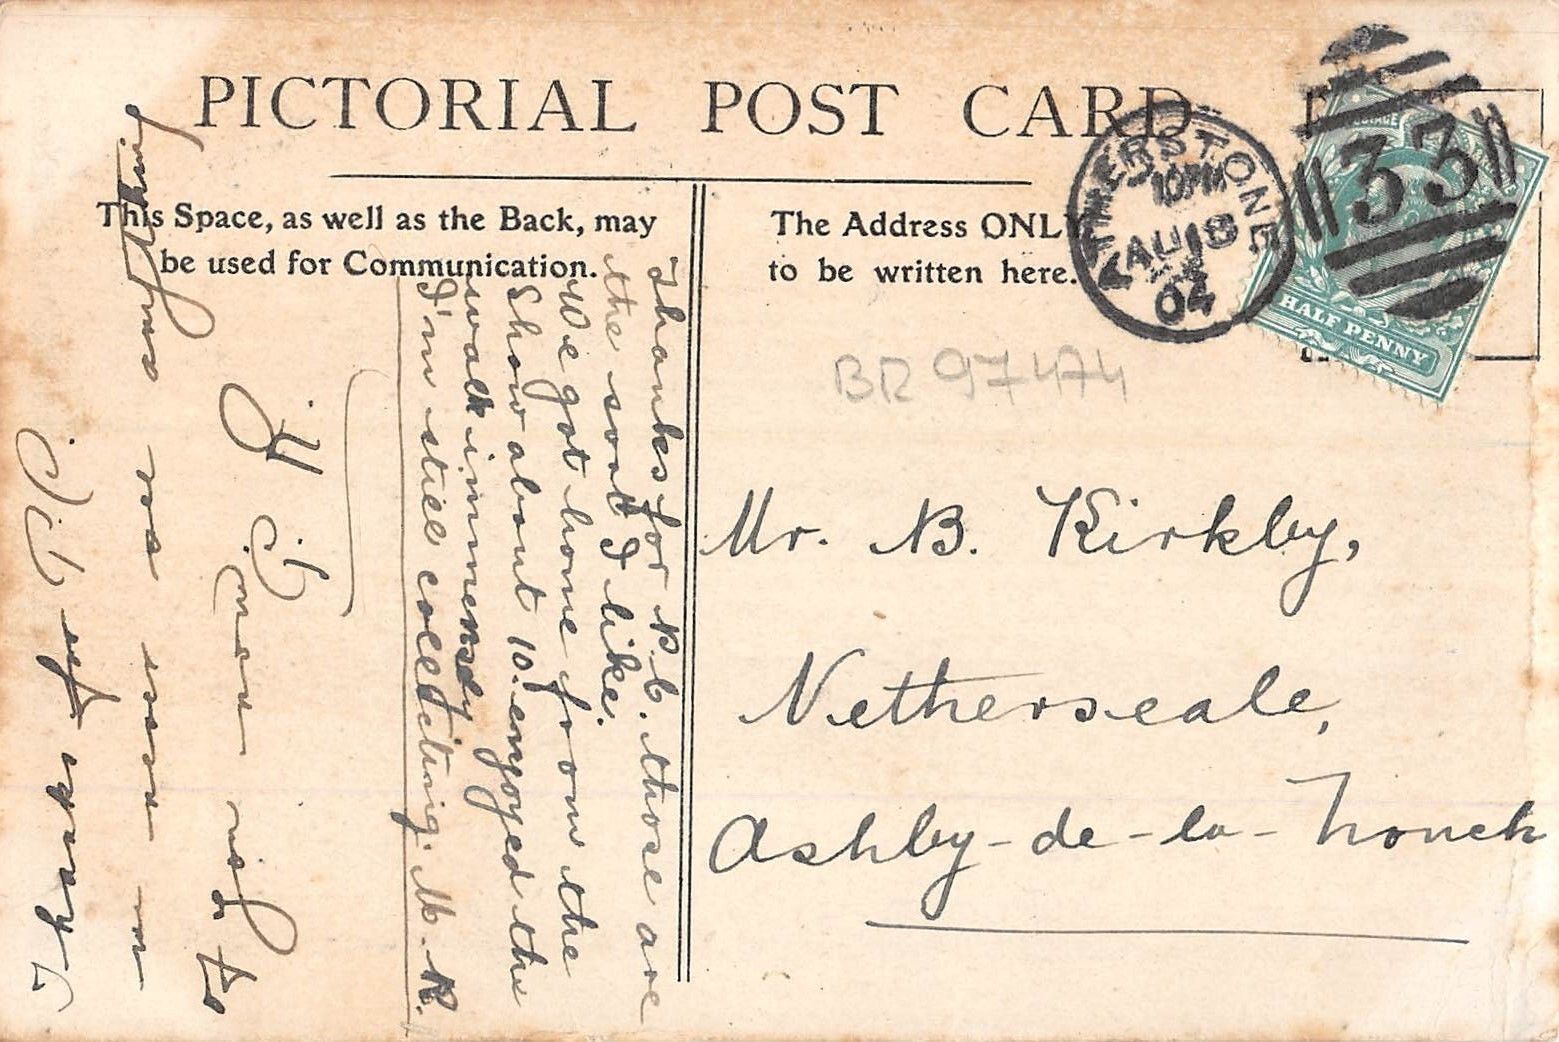 PICTORIAL POST CARD
This Space, as well as the Back, may
be used for Communication.
The Address ONLY
to be written here.
ATHERSTONE
10 PM
AU 18
04
33
POSTAGE
HALF PENNY
BR 97474
Mr. B. Kirkby,
Netherseale,
Ashby-de-la-Zouch
Thanks for P.C. those are
the sort I like.
We got home from the
Show about 10. enjoyed the
walk immensely
I'm still collecting. M. K.
Thanks for P.C.